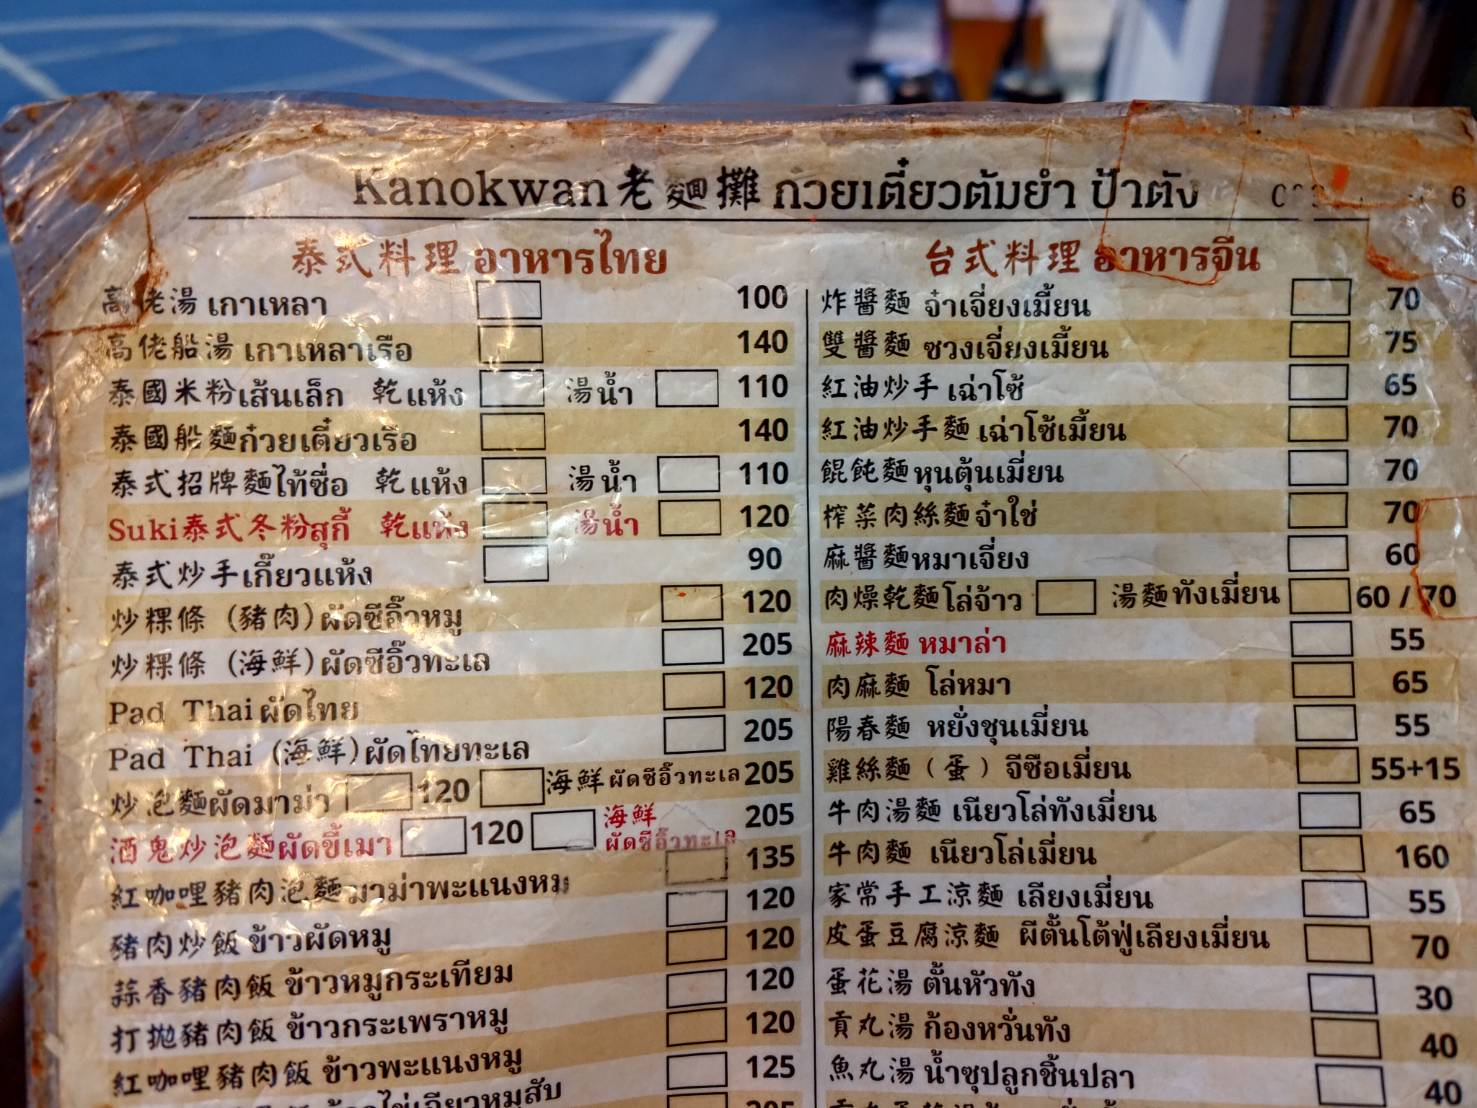 Kanokwan老麵攤 กวยเตี๋ยวต้มยำ ป้าตัง
泰式料理 อาหารไทย
高佬湯 เกาเหลา 100
高佬船湯 เกาเหลาเรือ 140
泰國米粉เส้นเล็ก 乾แห้ง 湯น้ำ 110
泰國船麵ก๋วยเตี๋ยวเรือ 140
泰式招牌麵ไท้ซื่อ 乾แห้ง 湯น้ำ 110
Suki泰式冬粉สุกี้ 乾แห้ง 湯น้ำ 120
泰式炒手เกี๊ยวแห้ง 90
炒粿條 (豬肉)ผัดซีอิ๊วหมู 120
炒粿條 (海鮮)ผัดซีอิ๊วทะเล 205
Pad Thaiผัดไทย 120
Pad Thai (海鮮)ผัดไทยทะเล 205
炒泡麵ผัดมาม่า 120 海鮮ผัดซีอิ๊วทะเล 205
酒鬼炒泡麵ผัดขี้เมา 120 海鮮 ผัดซีอิ๊วทะเล 205
紅咖哩豬肉泡麵มาม่าพะแนงหมู 135
豬肉炒飯 ข้าวผัดหมู 120
蒜香豬肉飯 ข้าวหมูกระเทียม 120
打拋豬肉飯 ข้าวกระเพราหมู 120
紅咖哩豬肉飯 ข้าวพะแนงหมู 120
125
台式料理 อาหารจีน
炸醬麵 จ๋าเจี่ยงเมี้ยน 70
雙醬麵 ซวงเจี่ยงเมี้ยน 75
紅油炒手 เฉ่าโซ้ 65
紅油炒手麵 เฉ่าโซ้เมี้ยน 70
餛飩麵หุนตุ้นเมี่ยน 70
榨菜肉絲麵จ๋าใช่ 70
麻醬麵หมาเจี่ยง 60
肉燥乾麵โล่จ้าว 湯麵ทังเมี่ยน 60 / 70
麻辣麵 หมาล่า 55
肉麻麵 โล่หมา 65
陽春麵 หยั่งชุนเมี่ยน 55
雞絲麵 (蛋) จีซือเมี่ยน 55+15
牛肉湯麵 เนียวโล่ทังเมี่ยน 65
牛肉麵 เนียวโล่เมี่ยน 160
家常手工涼麵 เลียงเมี่ยน 55
皮蛋豆腐涼麵 ผีตั้นโต้ฟู่เลียงเมี่ยน 70
蛋花湯 ตั้นหัวทัง 30
貢丸湯 ก้องหวั่นทัง 40
魚丸湯 น้ำซุปลูกชิ้นปลา 40